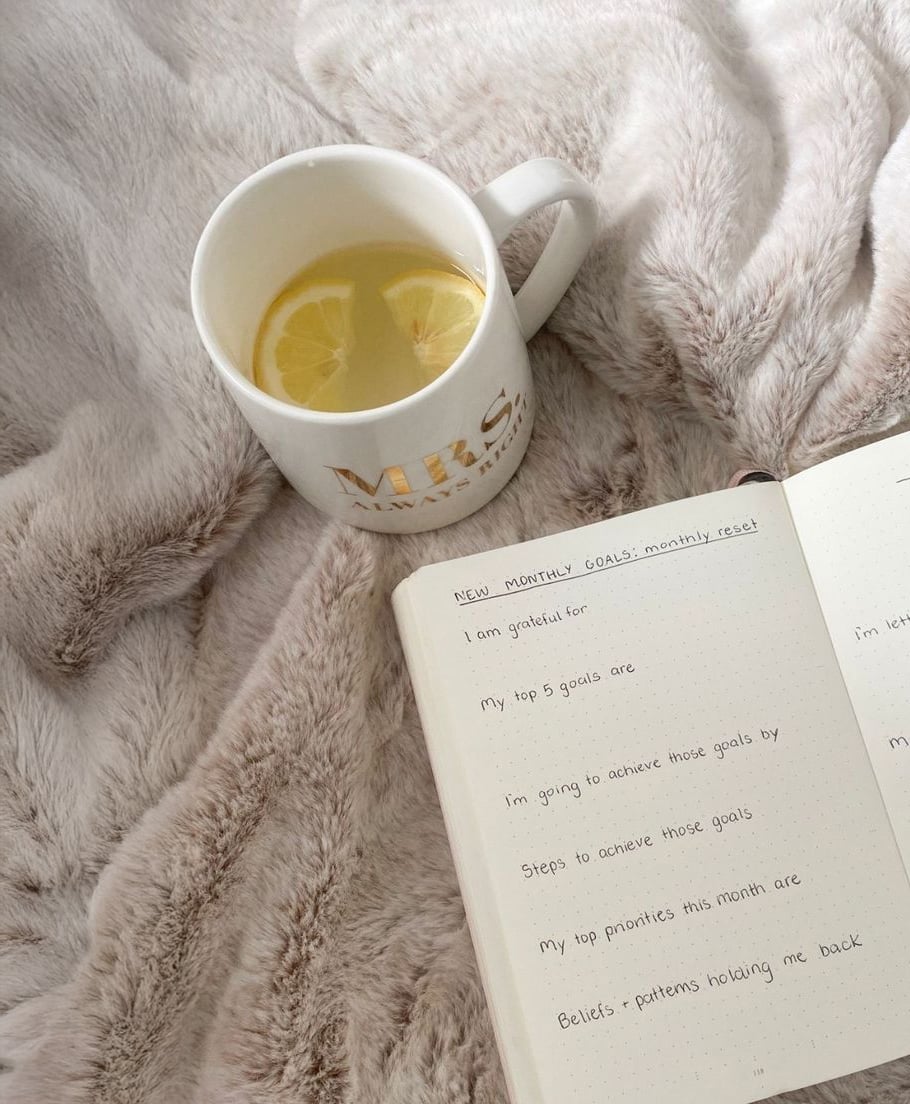 MRS.
ALWAYS RIGHT
NEW MONTHLY GOALS: monthly reset
I am grateful for
My top 5 goals are
I'm going to achieve those goals by
Steps to achieve those goals
My top priorities this month are
Beliefs + patterns holding me back
I'm